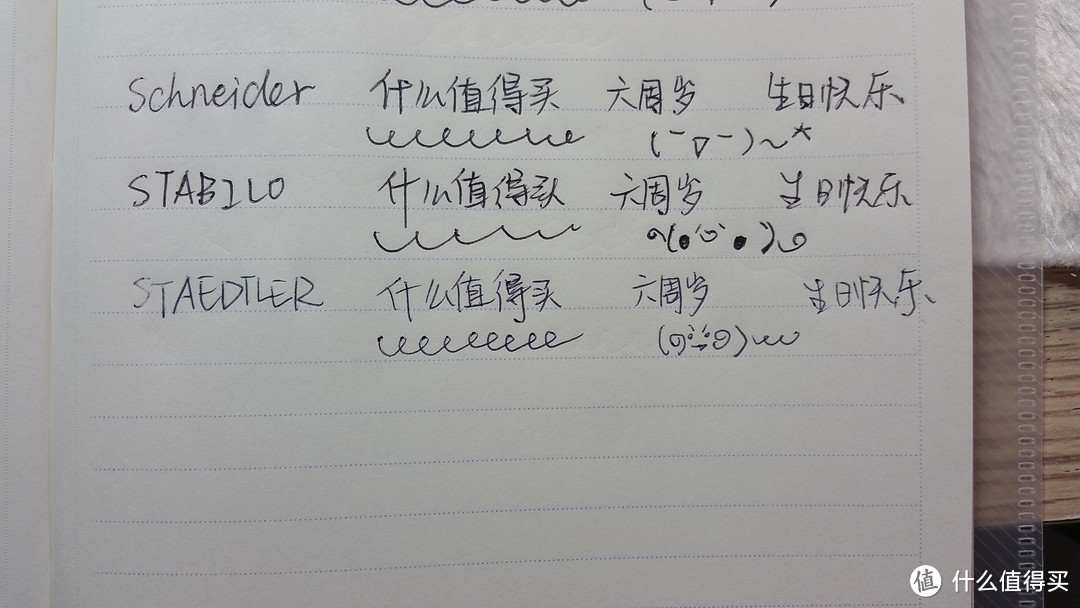 Schneider 什么值得买 六周岁 生日快乐
(ˉ▽ˉ)~*
STABILO 什么值得买 六周岁 生日快乐
STAEDTLER 什么值得买 六周岁 生日快乐
值 什么值得买